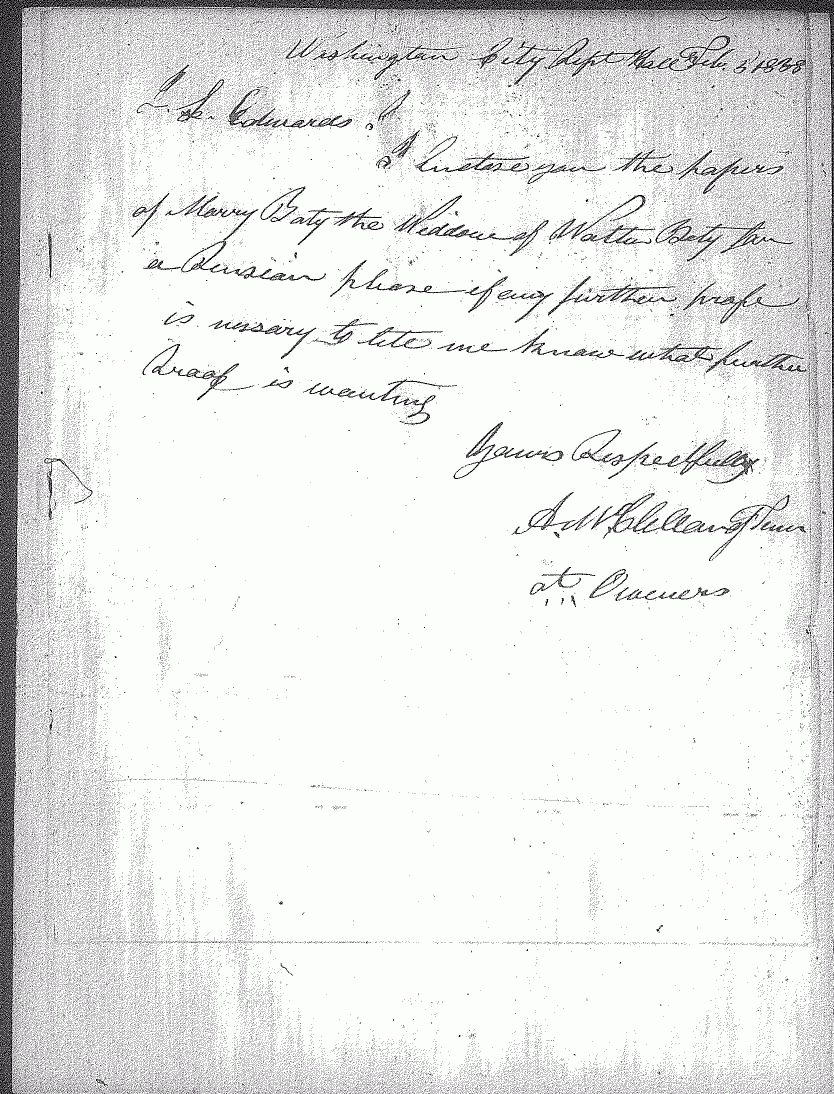 Washington City Rept Hall Feb. 5 1838
J. L. Edwards
I Inclose you the papers
of Marry Baty the Widdow of Walter Baty for
a Pension please if any further profe
is nessary to lete me know what further
Proof is wanting
Yours Respectfully
A. McClellan of Tenn
at Owners